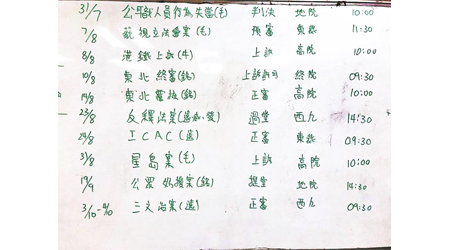 31/7 公職人員行為失當(毛) 判法 地院 10:00
7/8 藐視立法會案(毛) 預審 東裁 11:30
8/8 港鐵上訴(4) 上訴 高院 10:00
10/8 東北終審(銘) 上訴許可 終院 09:30
14/8 東北覆核(銘) 正審 高院 10:00
23/8 反釋法案(遠) 過堂 西九 14:30
29/8 ICAC(遠) 正審 東裁 09:30
31/8 星島案(毛) 上訴 高院 10:00
19/9 公眾妨擾案(銘) 提堂 地院 14:30
3/10-4/10 三文治案(遠) 正審 西九 09:30